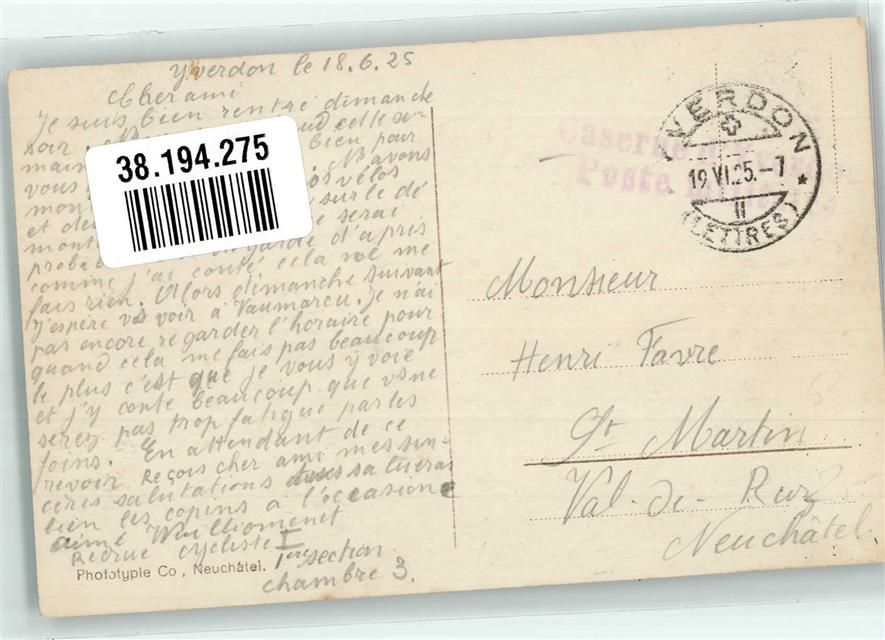 Yverdon le 18.6.25
Cher ami
Je suis bien rentré dimanche
soir
bien pour
vous
N avons
mon vélos
et de sur le dé
mont serai
proba garde d'après
comme j'ai conté cela ne me
fais rien. Alors dimanche suivant
j'espère vs voir à Vaumarcu. Je n'ai
pas encore regarder l'horaire pour
quand cela me fais pas beaucoup
le plus c'est que je vous y voie
et j'y conte beaucoup que vs ne
serez pas trop fatigué par les
foins. En attendant de ce
revoir Reçois cher ami mes sin-
cères salutations saluras
bien les copins à l'occasion
aimé Wuilliomenet
Recrue cycliste I
1ère section
chambre 3.
Phototypie Co, Neuchâtel.
38.194.275
Caserne d'Yverdon
Poste
YVERDON
19.VI.25.-7
II
(LETTRES)
Monsieur
Henri Favre
St Martin
Val-de-Ruz
Neuchâtel